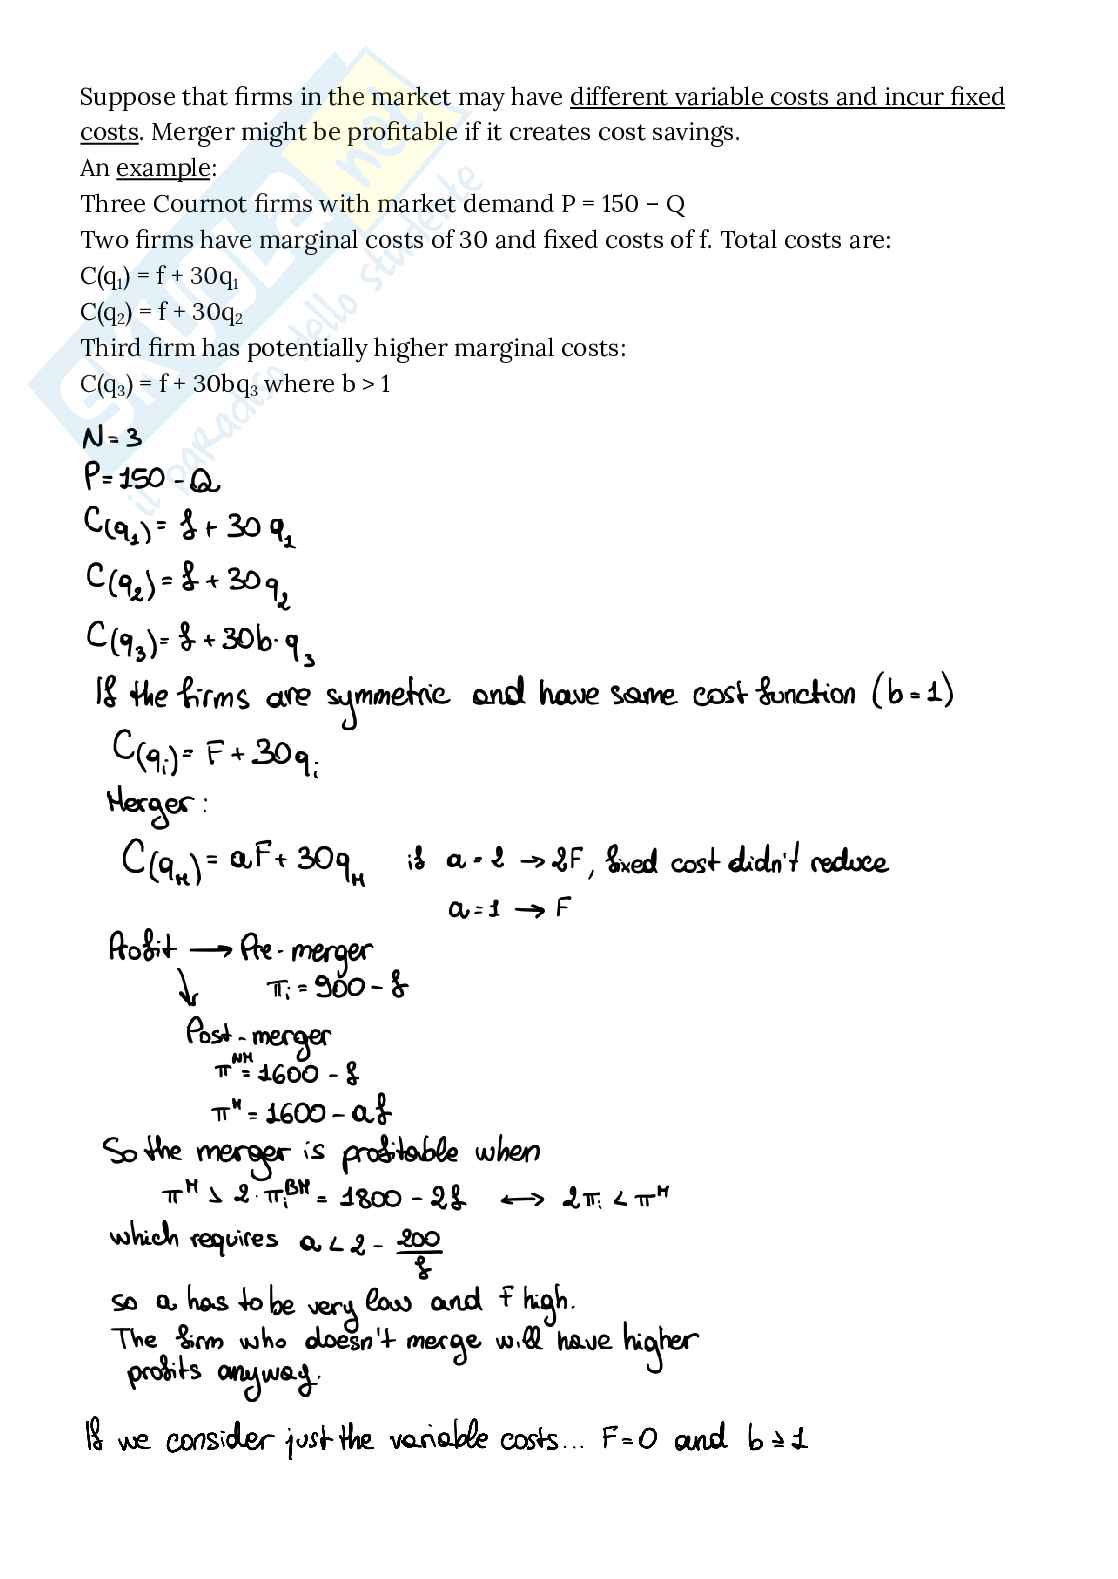 Suppose that firms in the market may have different variable costs and incur fixed
costs. Merger might be profitable if it creates cost savings.
An example:
Three Cournot firms with market demand P = 150 – Q
Two firms have marginal costs of 30 and fixed costs of f. Total costs are:
C(q₁) = f + 30q₁
C(q₂) = f + 30q₂
Third firm has potentially higher marginal costs:
C(q₃) = f + 30bq₃ where b > 1
N = 3
P = 150 - Q
C(q₁) = f + 30 q₁
C(q₂) = f + 30 q₂
C(q₃) = f + 30b · q₃
If the firms are symmetric and have same cost function (b = 1)
C(qᵢ) = F + 30qᵢ
Merger:
C(q_M) = aF + 30q_M if a = 2 → 2F, fixed cost didn't reduce
a = 1 → F
Profit → Pre-merger
πᵢ = 900 - f
Post-merger
π^NM = 1600 - f
π^M = 1600 - af
So the merger is profitable when
π^M > 2 · πᵢ^BM = 1800 - 2f ↔ 2πᵢ < π^M
which requires a < 2 - 200/f
so a has to be very low and f high.
The firm who doesn't merge will have higher
profits anyway.
If we consider just the variable costs... F = 0 and b ≥ 1
skuola.net
il paradiso dello studente